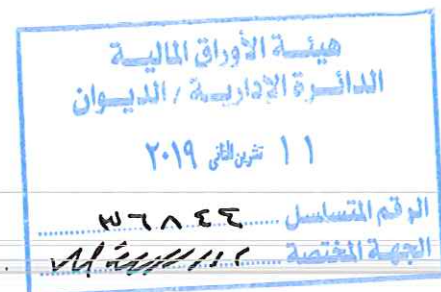 هيئة الأوراق المالية
الدائرة الإدارية / الديوان
١١ تشرين الثاني ٢٠١٩
الرقم المتسلسل ٣٦٨٤٤
الجهة المختصة